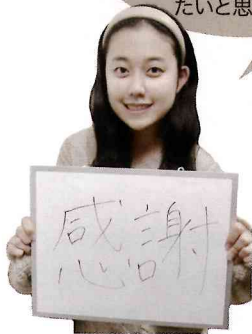 たいと思
感謝